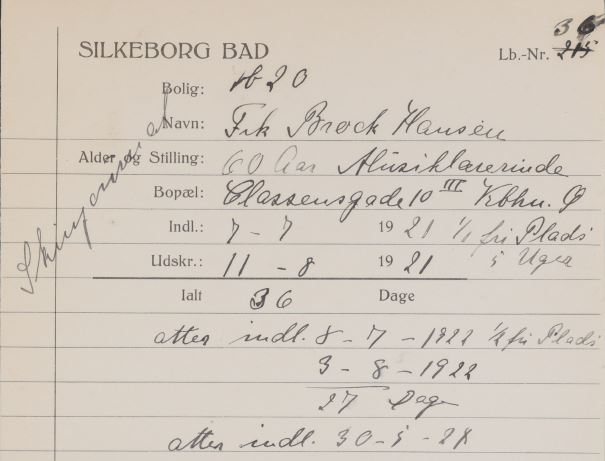 36
SILKEBORG BAD
Lb.-Nr. 215
Bolig: 20
Navn: Frk Brock Hansen
Alder og Stilling: 60 Aar Musiklærerinde
Bopæl: Classensgade 10 III Kbhn. Ø
Indl.: 7-7 1921 1/1 fri Plads
Udskr.: 11-8 1921 5 Uger
Ialt 36 Dage
atter indl. 8-7-1922 1/2 fri Plads
3-8-1922
27 Dage
atter indl. 30-5-